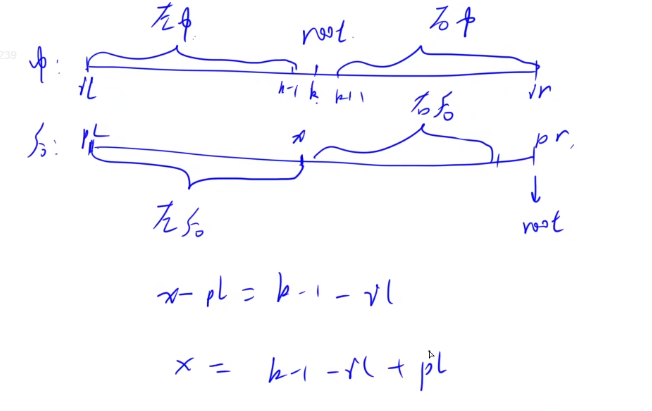 左中 root 右中
中: il k-1 k k+1 ir
后: pl x 右后 pr
左后 root
x - pl = k-1 - il
x = k-1 - il + pl